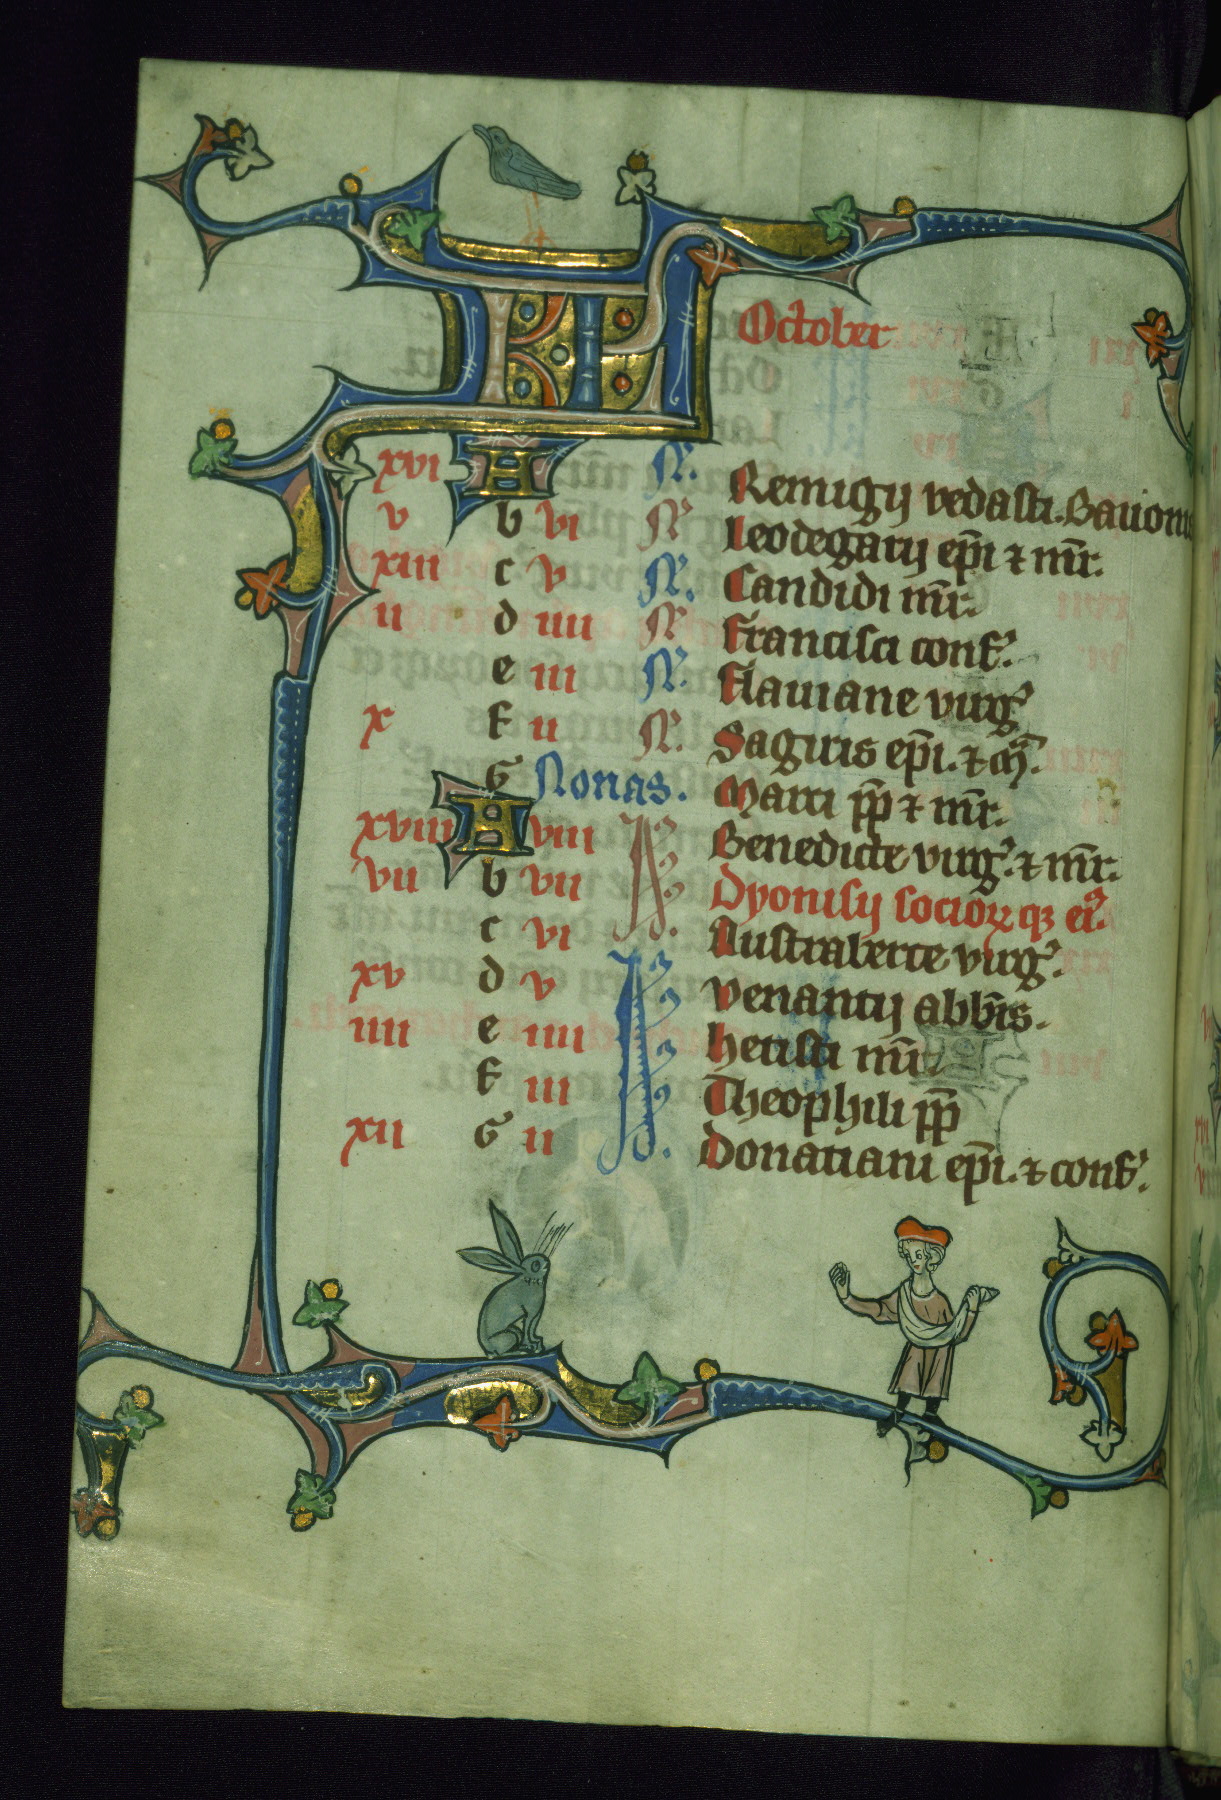 KL October
xvi A N. Remigij vedasti. Bauonis
v b vi N. Leodegarij ep̄i ⁊ mr̄.
xiii c v N. Candidi mr̄.
ii d iiii N. Francisci conf̄.
e iii N. Flauiane virḡ
x f ii N. Sagiris ep̄i. ⁊ cf̄.
G Nonas. Marci pp̄ ⁊ mr̄.
xviii A viii Benedicte virḡ. ⁊ mr̄.
vii b vii Dyonisij socioꝝ qꝫ ei᷒.
c vi Austraberte virḡ.
xv d v venantij abb̄is.
iiii e iiii hetisti mr̄.
f iii Theophili pp̄
xii G ii Donatiani ep̄i. ⁊ conf̄.